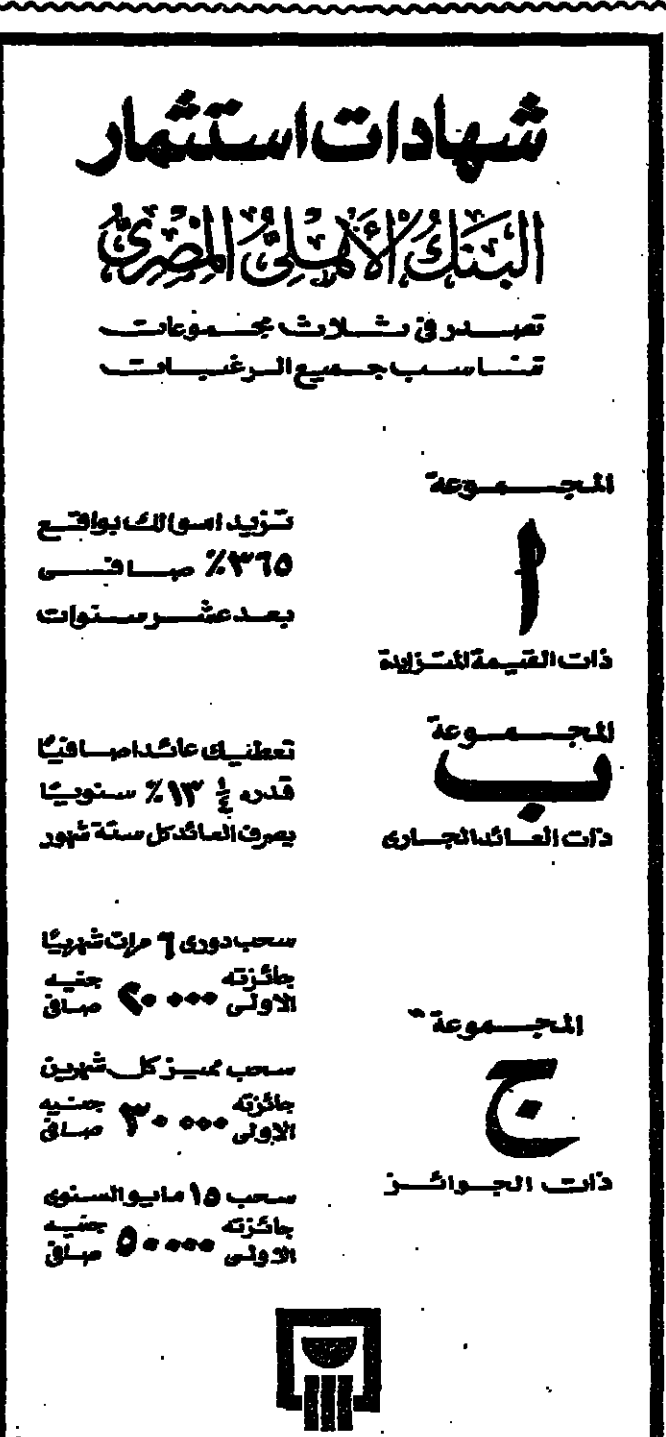 شهادات استثمار
البنك الأهلي المصري
تصدر في ثلاث مجموعات
تناسب جميع الرغبات
المجموعة
أ
ذات القيمة المتزايدة
تزيد اموالك بواقع
٣٦٥٪ صافى
بعد عشر سنوات
المجموعة
ب
ذات العائد الجارى
تعطيك عائدا صافيًا
قدره ١/٤ ١٣٪ سنويًا
يصرف العائد كل ستة شهور
المجموعة
ج
ذات الجوائز
سحب دورى ٦ مرات شهريًا
جائزته الاولى ٢٠٠٠٠ جنيه صافى
سحب مميز كل شهرين
جائزته الاولى ٣٠٠٠٠ جنيه صافى
سحب ١٥ مايو السنوى
جائزته الاولى ٥٠٠٠٠ جنيه صافى